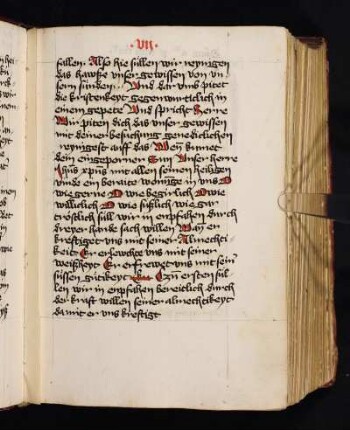 .vij.
fallen. Also hie sullen wir reynigen
das hawse vnser gewissen von vn
sern sunden Vnd dar vmb pitet
die kristenheyt gegenwurticlich in
einem gepete Vnd spricht Herre
Wir piten dich das vnser gewissen
mit deiner besuchung genediclichen
reynigest auff das Wen kumet
dein eingeporner Sun Vnser herre
Jhus xpus mit allen seinen heiligen
vinde ein beraite wonunge in vns O
wie gerne O wie begirlich O wie
williclich O wie susslich wie gar
trostlich sull wir in enpfahen durch
dreyer hande sach willen Wan er
kreftiget vns mit seiner Almechti
keit Er erlewchte vns mit seiner
weissheyt Er erfrewet vns mit seiner
sussen gutikeyt Czu ersten sul
len wir in enpfahen bereitlich durch
der kraft willen seiner almechtikeyt
da mit er vns kreftigt